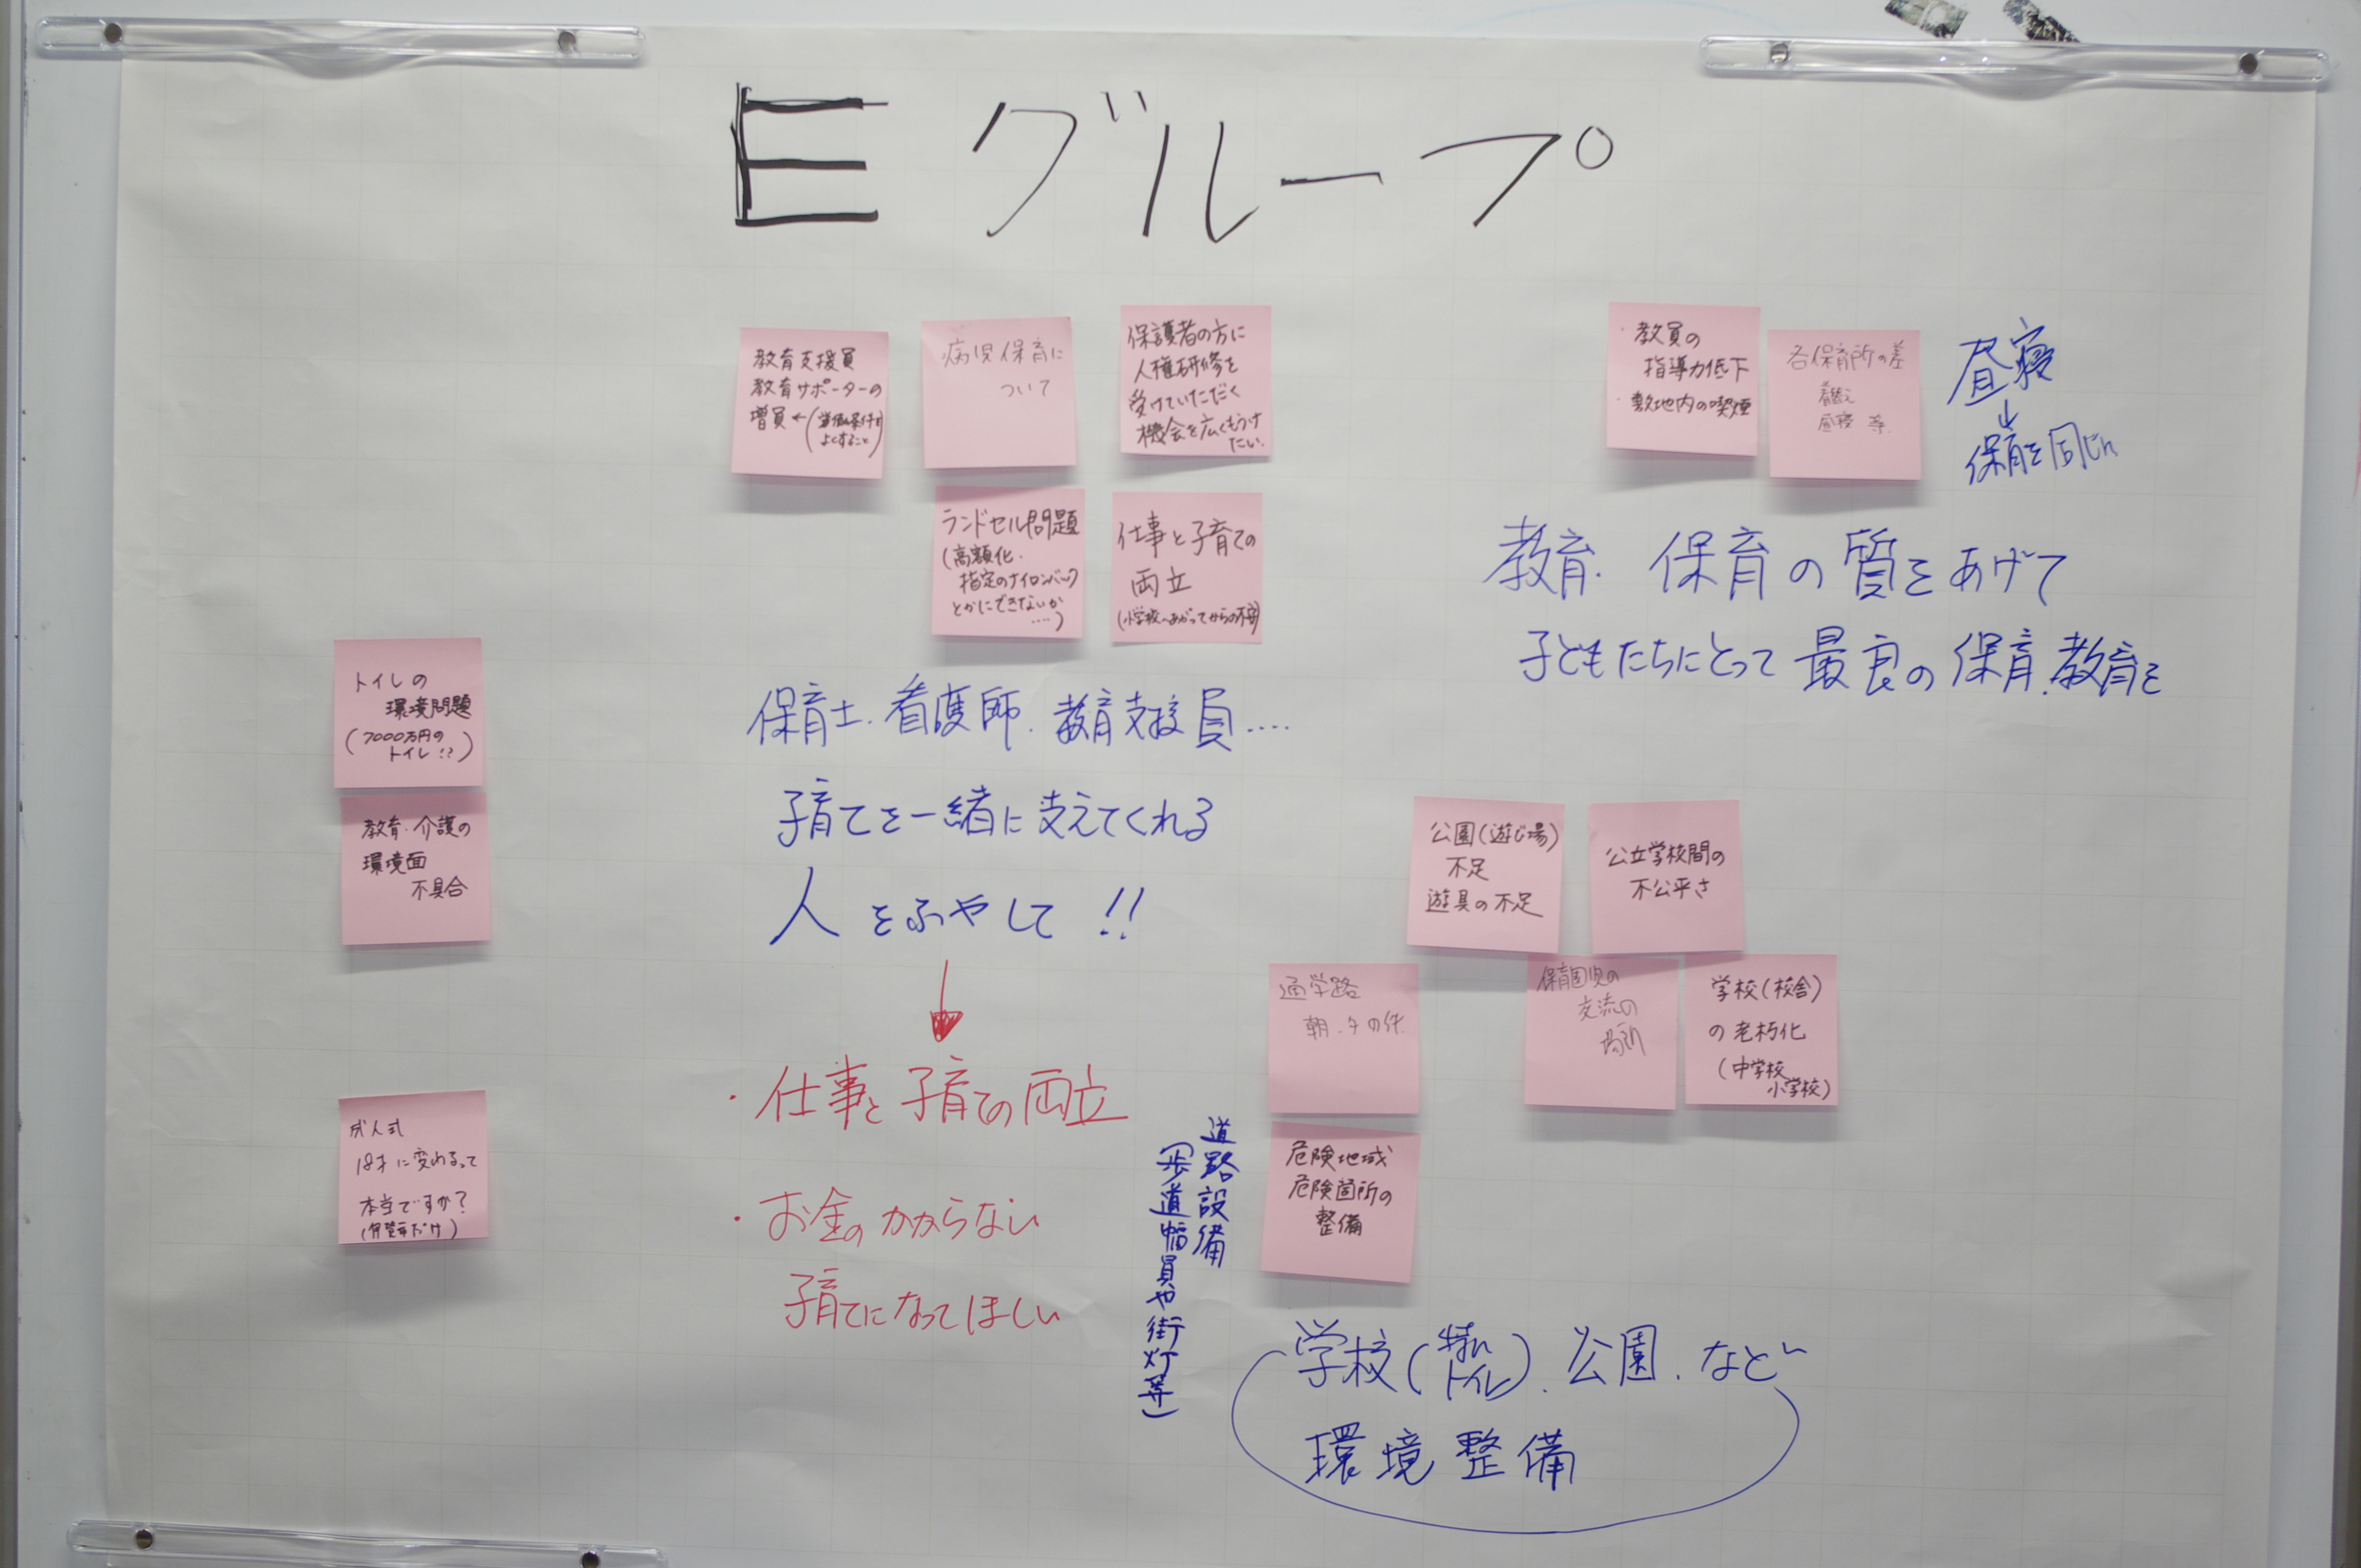 Eグループ
教育支援員
教育サポーターの
増員←(労働条件を
よくすること)
病児保育に
ついて
保護者の方に
人権研修を
受けていただく
機会を広くもうけ
たい.
ランドセル問題
(高額化.
指定のナイロンバック
とかにできないか
....)
仕事と子育ての
両立
(小学校へあがってからの不安)
保育士.看護師.教育支援員....
子育てを一緒に支えてくれる
人をふやして!!
・仕事と子育ての両立
・お金のかからない
子育てになってほしい
・教員の
指導力低下
・敷地内の喫煙
各保育所の差
着替え
昼寝 等.
昼寝
↓
保育を同じに
教育.保育の質をあげて
子どもたちにとって最良の保育.教育を
トイレの
環境問題
(7000万円の
トイレ!?)
教育・介護の
環境面
不具合
成人式
18才に変わるって
本当ですか?
公園(遊び場)
不足
遊具の不足
公立学校間の
不公平さ
通学路
朝.夕の件.
保育園児の
交流の
場所
学校(校舎)
の老朽化
(中学校
小学校)
危険地域
危険箇所の
整備
道路設備
(歩道幅員や街灯等)
学校(特に
トイレ).公園.など
環境整備